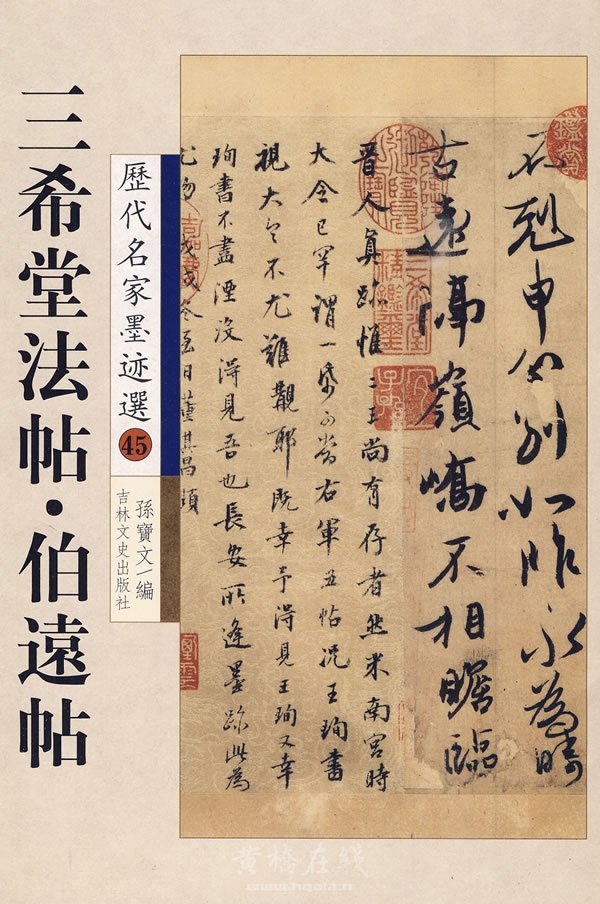 三希堂法帖·伯遠帖
歷代名家墨迹選
45
孫寶文/編
吉林文史出版社
不剋申分別如昨永為疇
古遠隔嶺嶠不相瞻臨
晉人真跡惟二王尚有存者然米南宮時
大令已罕謂一帋可當右軍五帖況王珣書
視大令不尤難覯耶既幸予得見王珣又幸
珣書不盡湮沒得見吾也長安所逢墨跡此為
尤物戊戌冬至日董其昌題
三希堂精鑑璽
宜子孫
黄橋在线